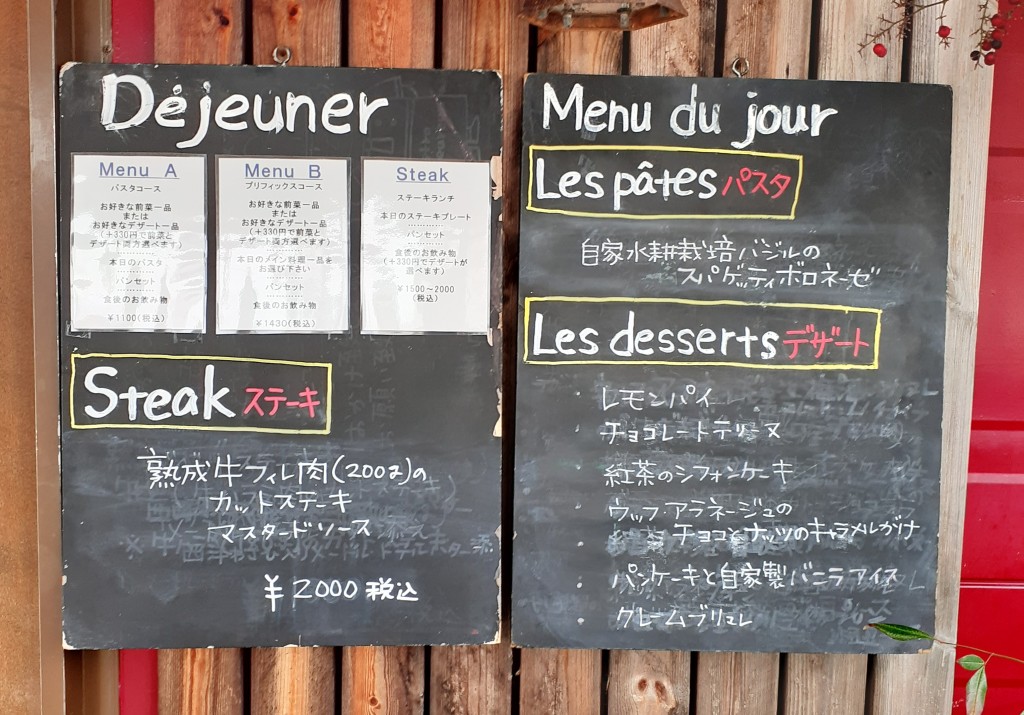 Déjeuner
Menu A
パスタコース
お好きな前菜一品
または
お好きなデザート一品
(+330円で前菜と
デザート両方選べます)
本日のパスタ
パンセット
食後のお飲み物
¥1100(税込)
Menu B
プリフィックスコース
お好きな前菜一品
または
お好きなデザート一品
(+330円で前菜と
デザート両方選べます)
本日のメイン料理一品を
お選び下さい
パンセット
食後のお飲み物
¥1430(税込)
Steak
ステーキランチ
本日のステーキプレート
パンセット
食後のお飲み物
(+330円でデザートが
選べます)
¥1500~2000
(税込)
Steak ステーキ
熟成牛フィレ肉(200g)の
カットステーキ
マスタードソース
¥2000 税込
Menu du jour
Les pâtes パスタ
自家水耕栽培バジルの
スパゲッティボロネーゼ
Les desserts デザート
・レモンパイ
・チョコレートテリーヌ
・紅茶のシフォンケーキ
・ウッフ・アラネージュの
チョコとナッツのキャラメルがけ
・パンケーキと自家製バニラアイス
・クレームブリュレ